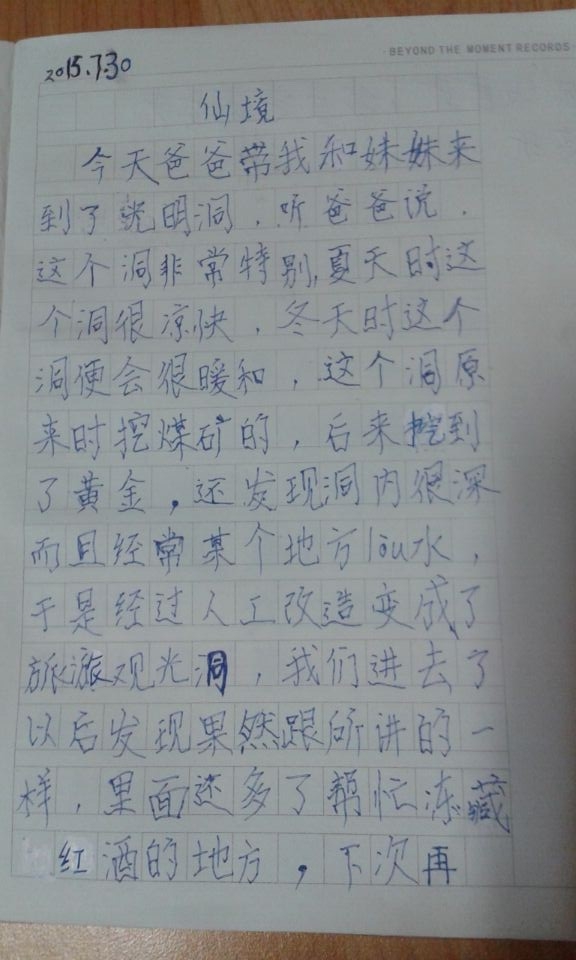 BEYOND THE MOMENT RECORDS
2015.7.30
仙境
今天爸爸带我和妹妹来
到了光明洞，听爸爸说，
这个洞非常特别,夏天时这
个洞很凉快，冬天时这个
洞便会很暖和，这个洞原
来时挖煤矿的，后来挖到
了黄金，还发现洞内很深
而且经常某个地方lòu水，
于是经过人工改造变成了
旅游观光洞，我们进去了
以后发现果然跟所讲的一
样，里面还多了帮忙冻藏
红酒的地方，下次再